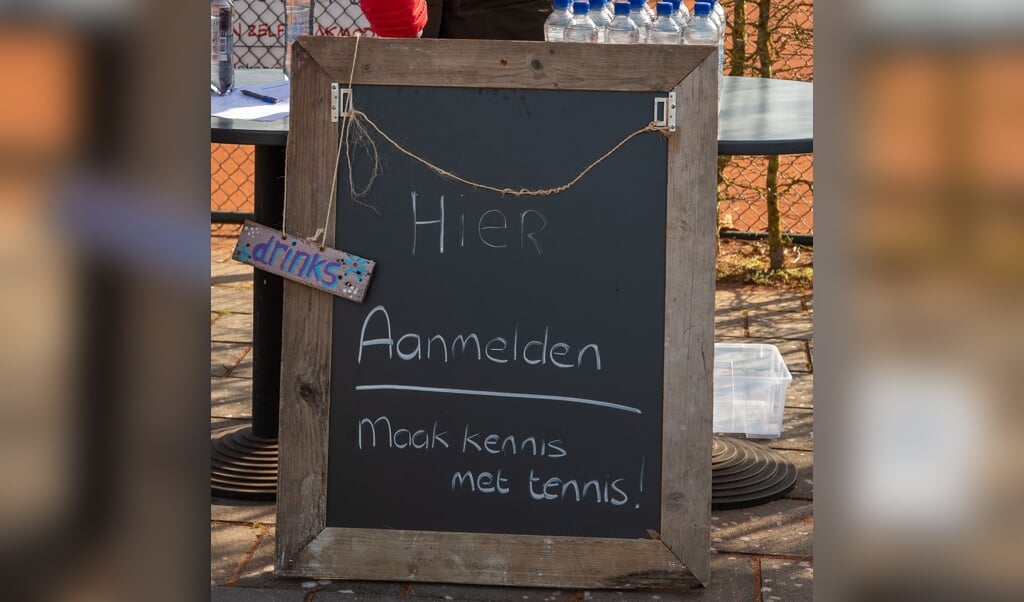 Hier
drinks
Aanmelden
Maak kennis
met tennis!